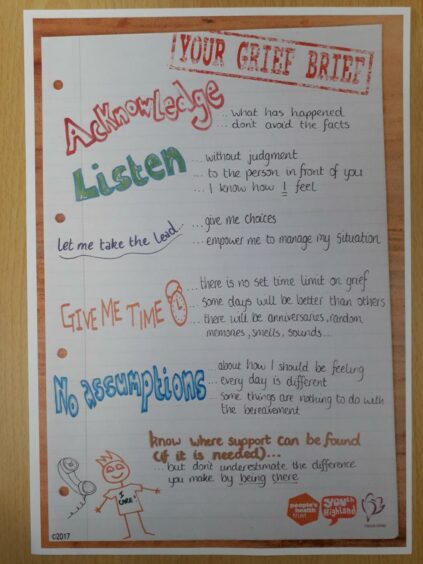 YOUR GRIEF BRIEF
Acknowledge
...what has happened
...dont avoid the facts
Listen
...without judgment
...to the person in front of you
...I know how I feel
let me take the lead
...give me choices
...empower me to manage my situation
GIVE ME TIME
...there is no set time limit on grief
...some days will be better than others
...there will be anniversaries, random
memories, smells, sounds...
No assumptions
...about how I should be feeling
...every day is different
...some things are nothing to do with
the bereavement
know where support can be found
(if it is needed)...
...but don't underestimate the difference
you make by being there
I
CARE!
people's
health
trust
youth
Highland
©2017